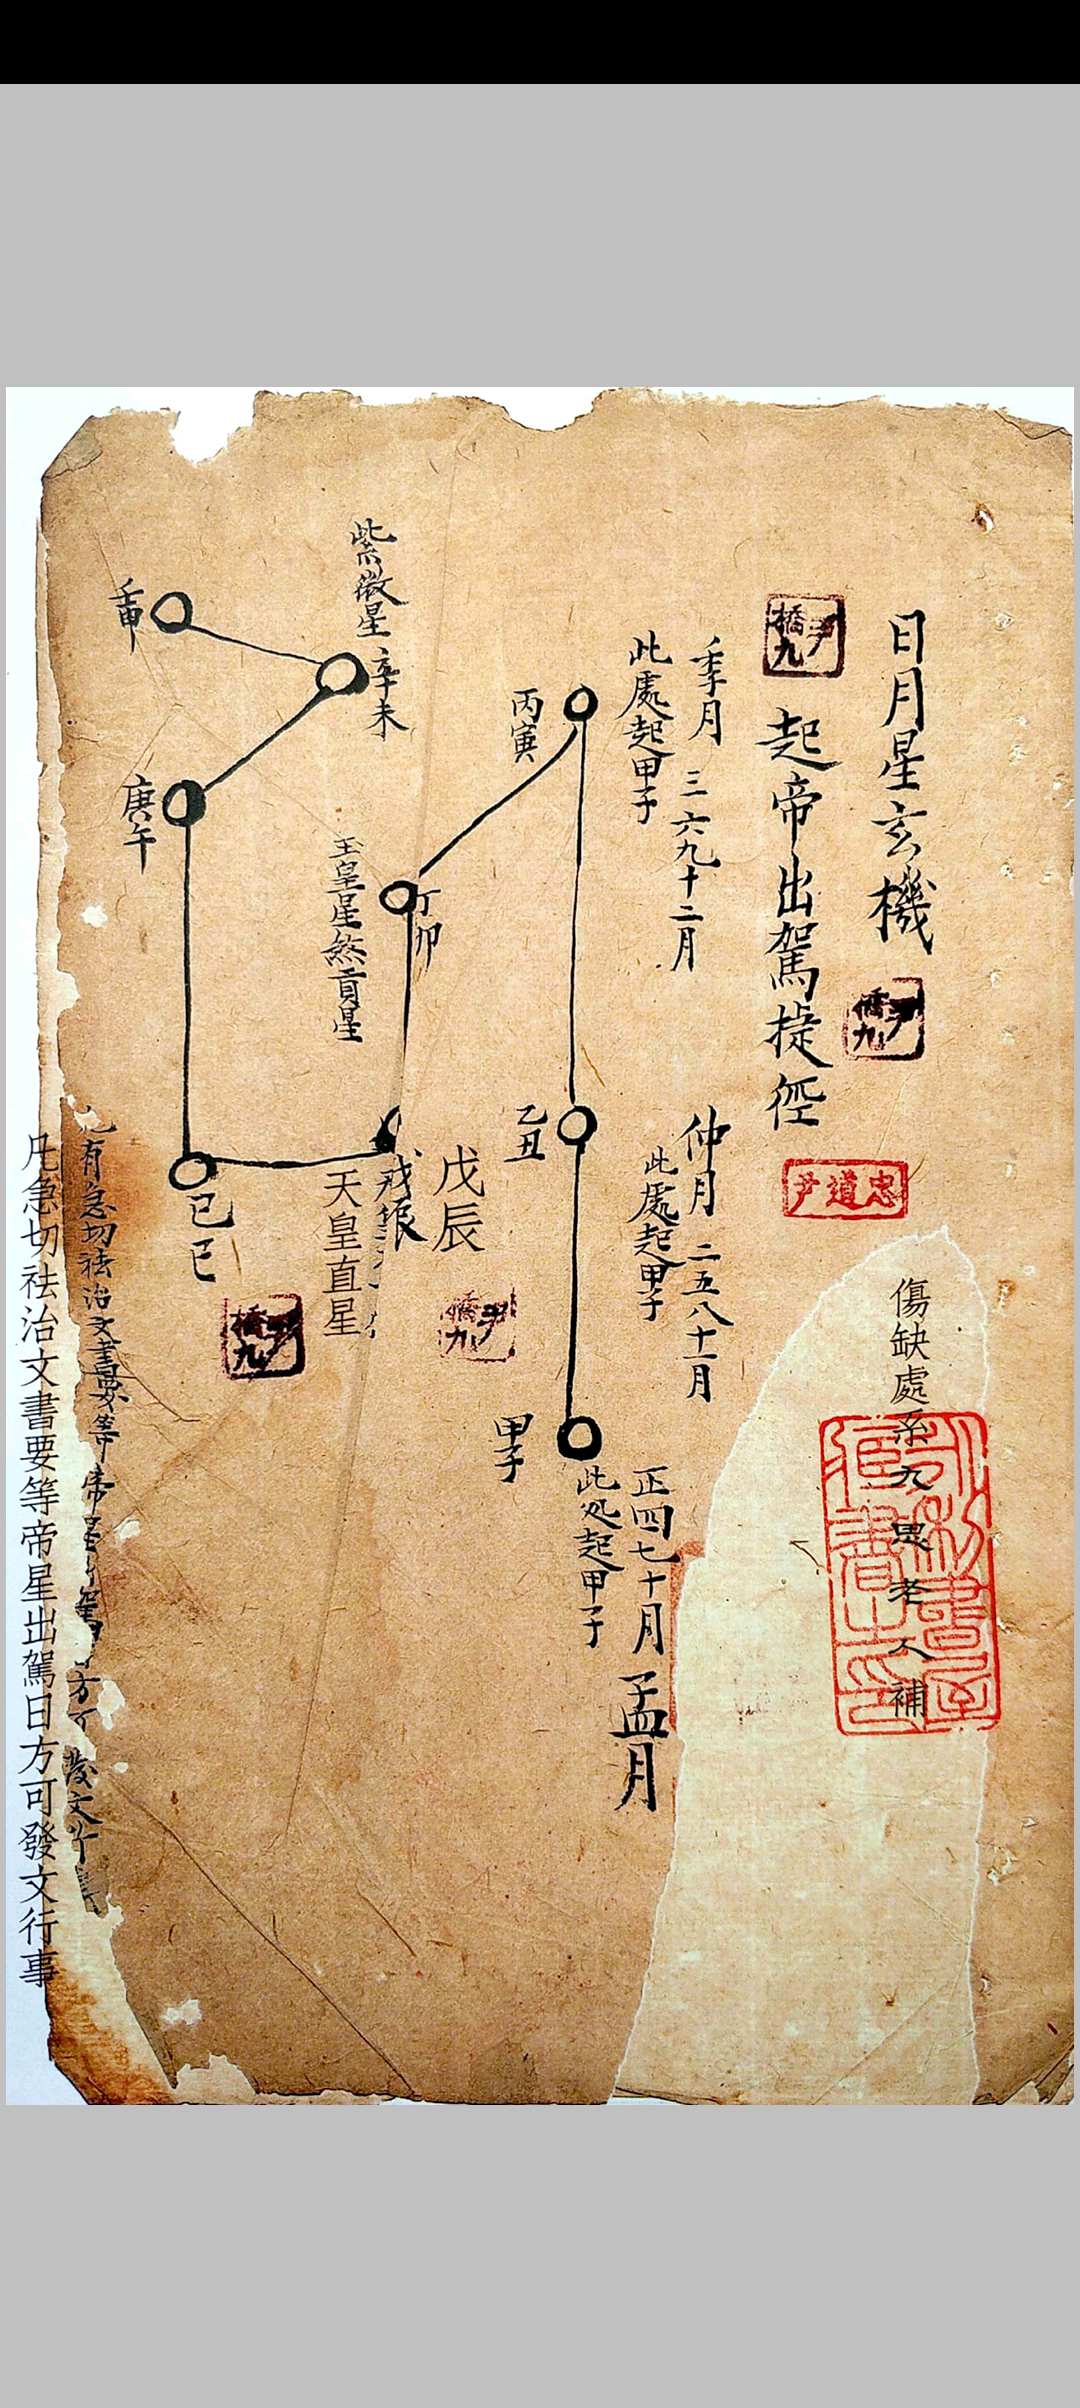 日月星玄機
起帝出駕捷徑
尹橋九
尹橋九
忠道尹
傷缺處系九思老人補
季月 三六九十二月
此處起甲子
仲月 二五八十一月
此處起甲子
正四七十月 孟月
此处起甲子
丙寅
乙丑
甲子
丁卯
戊辰
天皇直星
玉皇星煞貢星
紫微星 辛未
壬申
庚午
己巳
尹橋九
尹橋九
有急切祛治文書要等帝星
方可發文
凡急切祛治文書要等帝星出駕日方可發文行事